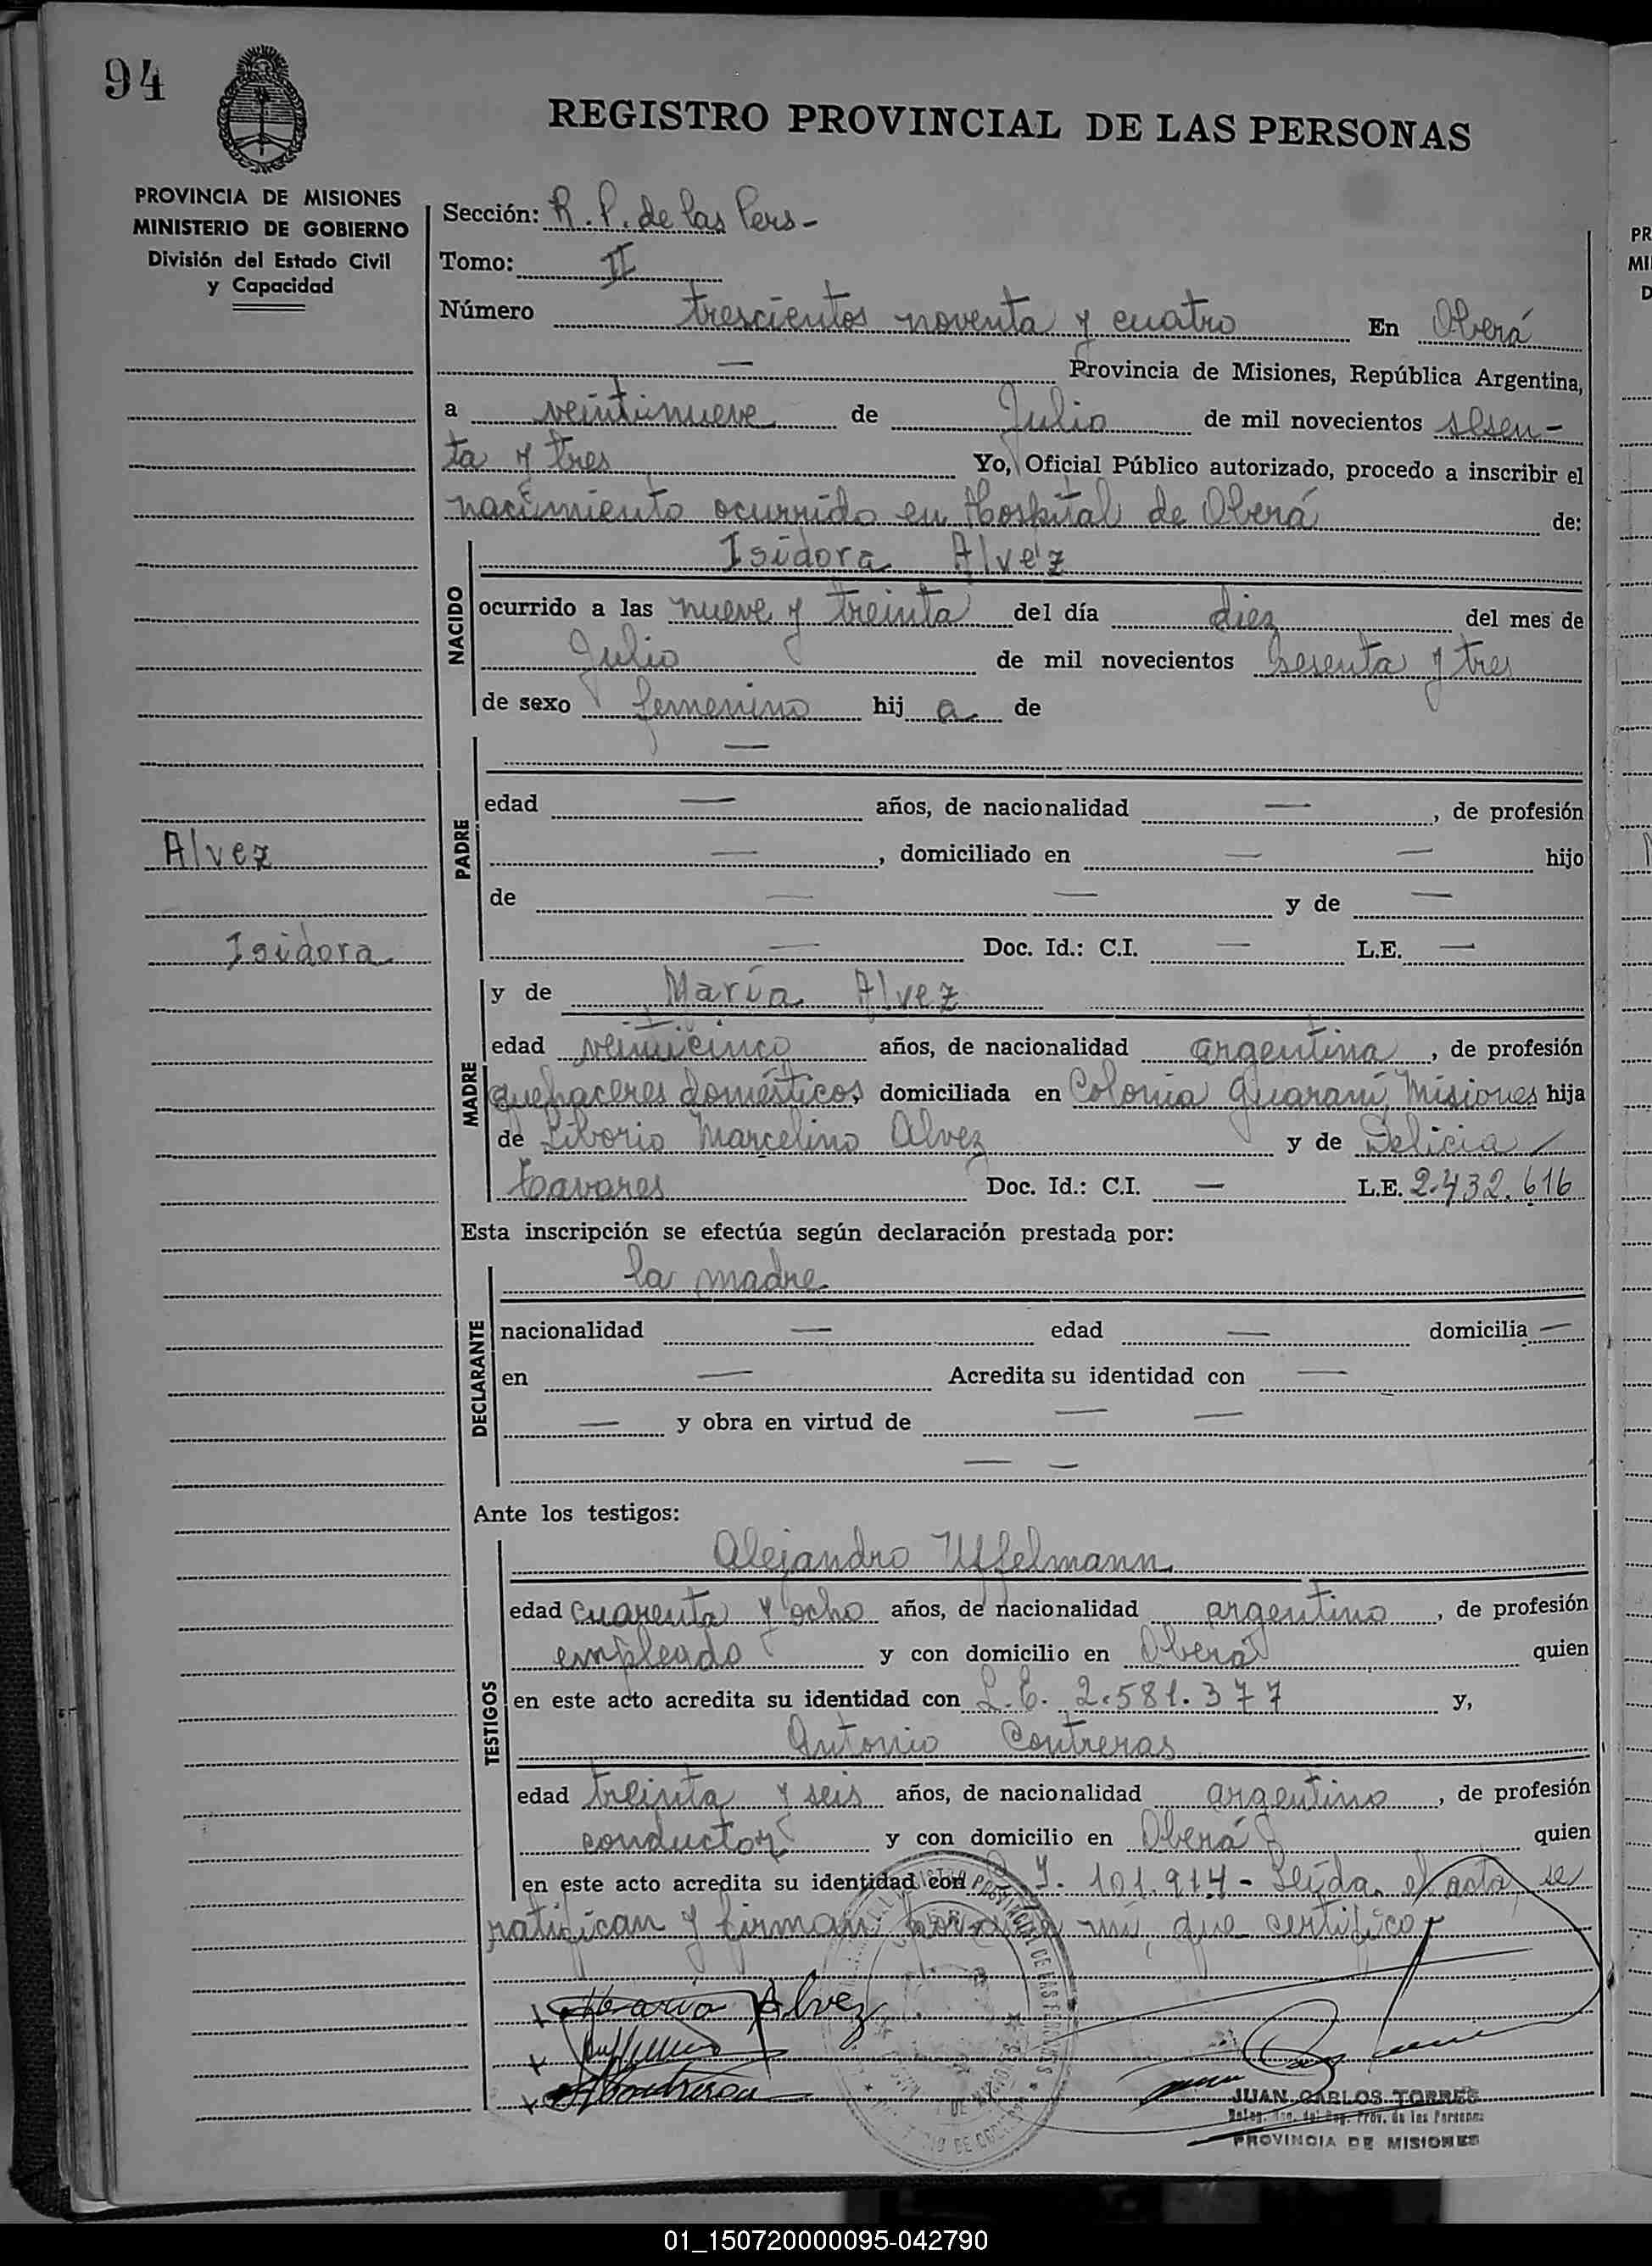 94
REGISTRO PROVINCIAL DE LAS PERSONAS
PROVINCIA DE MISIONES
MINISTERIO DE GOBIERNO
División del Estado Civil
y Capacidad
Sección: R. P. de las Pers -
Tomo: II
Número trescientos noventa y cuatro En Oberá
— Provincia de Misiones, República Argentina,
a veintinueve de Julio de mil novecientos sesen-
ta y tres Yo, Oficial Público autorizado, procedo a inscribir el
nacimiento ocurrido en Hospital de Oberá de:
NACIDO
Isidora Alvez
ocurrido a las nueve y treinta del día diez del mes de
Julio de mil novecientos sesenta y tres
de sexo femenino hij a de
PADRE
—
edad — años, de nacionalidad —, de profesión
—, domiciliado en — — hijo
de — — y de —
— Doc. Id.: C.I. — L.E. —
Alvez
Isidora
MADRE
y de María Alvez
edad veinticinco años, de nacionalidad argentina, de profesión
quehaceres domésticos domiciliada en Colonia Guaraní, Misiones hija
de Liborio Marcelino Alvez y de Delicia
Tavares Doc. Id.: C.I. — L.E. 2.432.616
Esta inscripción se efectúa según declaración prestada por:
DECLARANTE
la madre
nacionalidad — edad — domicilia —
en — Acredita su identidad con —
— y obra en virtud de — —
— —
Ante los testigos:
TESTIGOS
Alejandro Uffelmann
edad cuarenta y ocho años, de nacionalidad argentino, de profesión
empleado y con domicilio en Oberá quien
en este acto acredita su identidad con L.E. 2.581.377 y,
Antonio Contreras
edad treinta y seis años, de nacionalidad argentino, de profesión
conductor y con domicilio en Oberá quien
en este acto acredita su identidad con I. 101.914 - Leída el acta, se
ratifican y firman por ante mí, que certifico
María Alvez
AContreras
JUAN CARLOS TORRES
Prov. de las Personas
PROVINCIA DE MISIONES
01_150720000095-042790